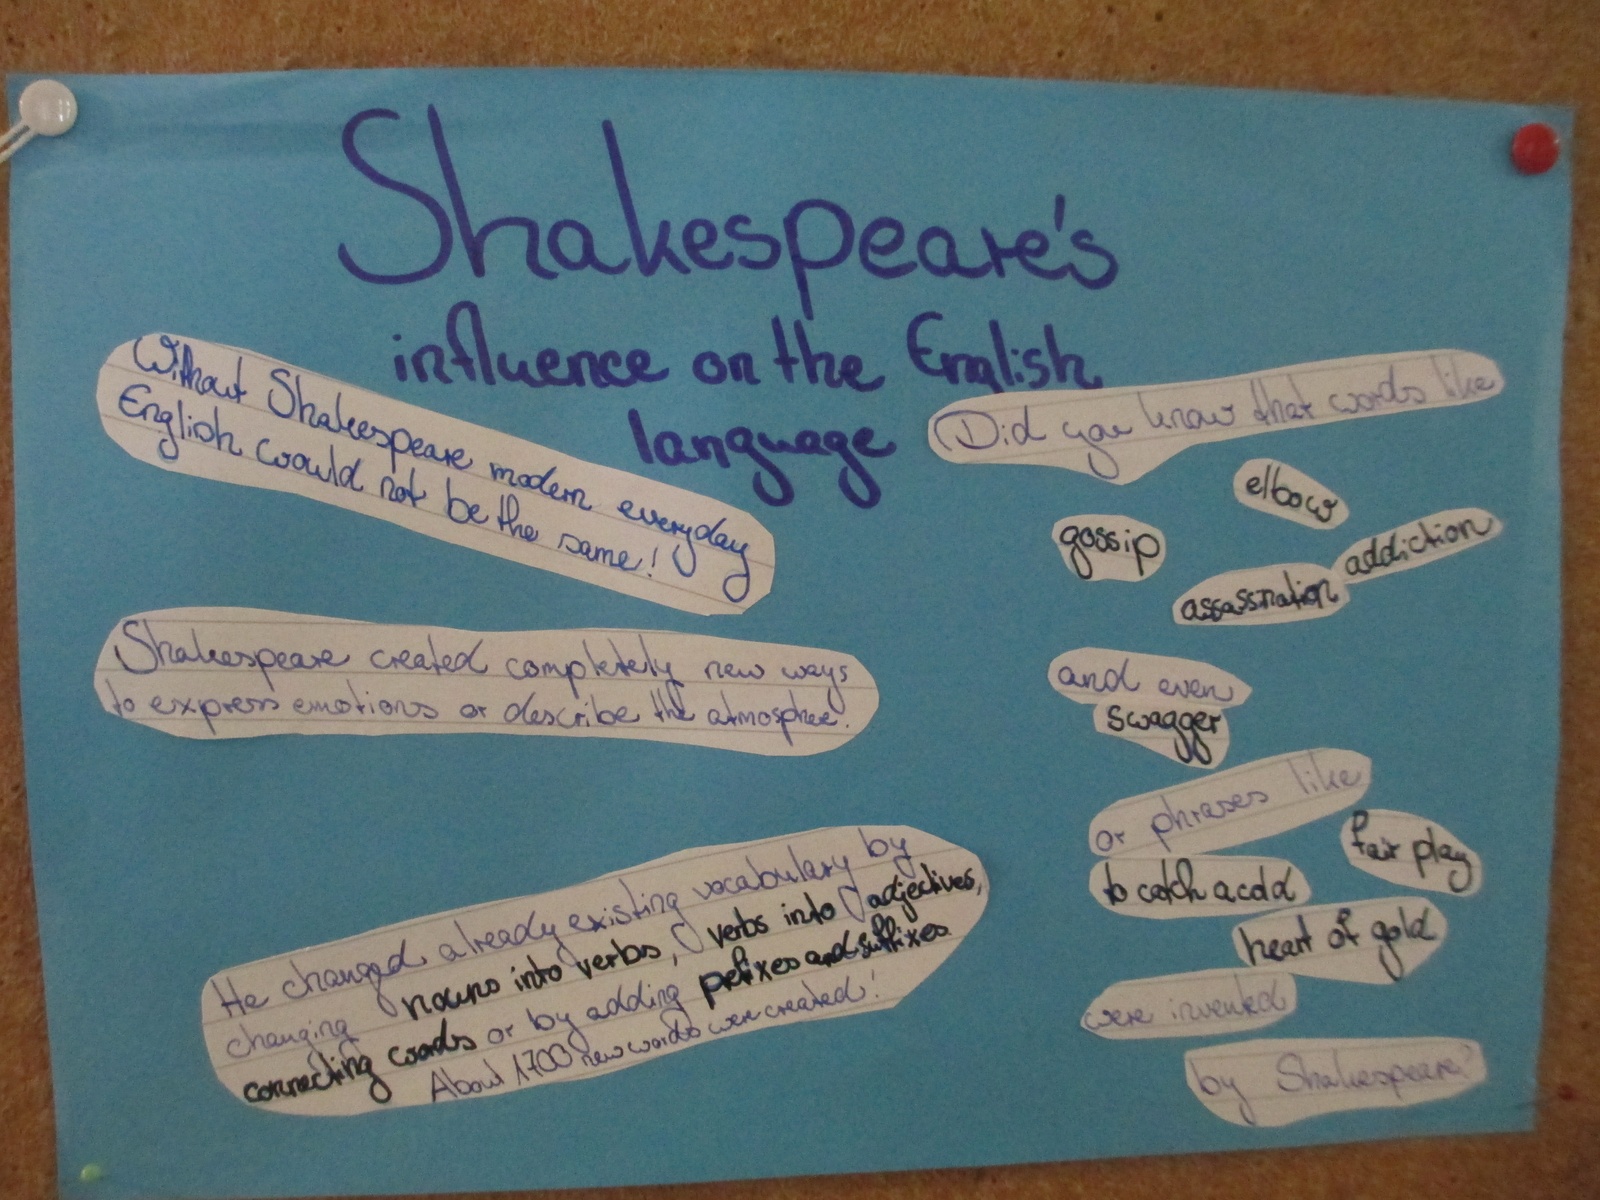 Shakespeare's
influence on the English
language
Without Shakespeare modern everyday
English would not be the same!
Shakespeare created completely new ways
to express emotions or describe the atmosphee.
He changed already existing vocabulary by
changing nouns into verbs, verbs into adjectives,
connecting words or by adding prefixes and suffixes.
About 1700 new words were created!
Did you know that words like
elbow
gossip
addiction
assassnation
and even
swagger
or phrases like
fair play
to catch a cold
heart of gold
were invented
by Shakespeare?